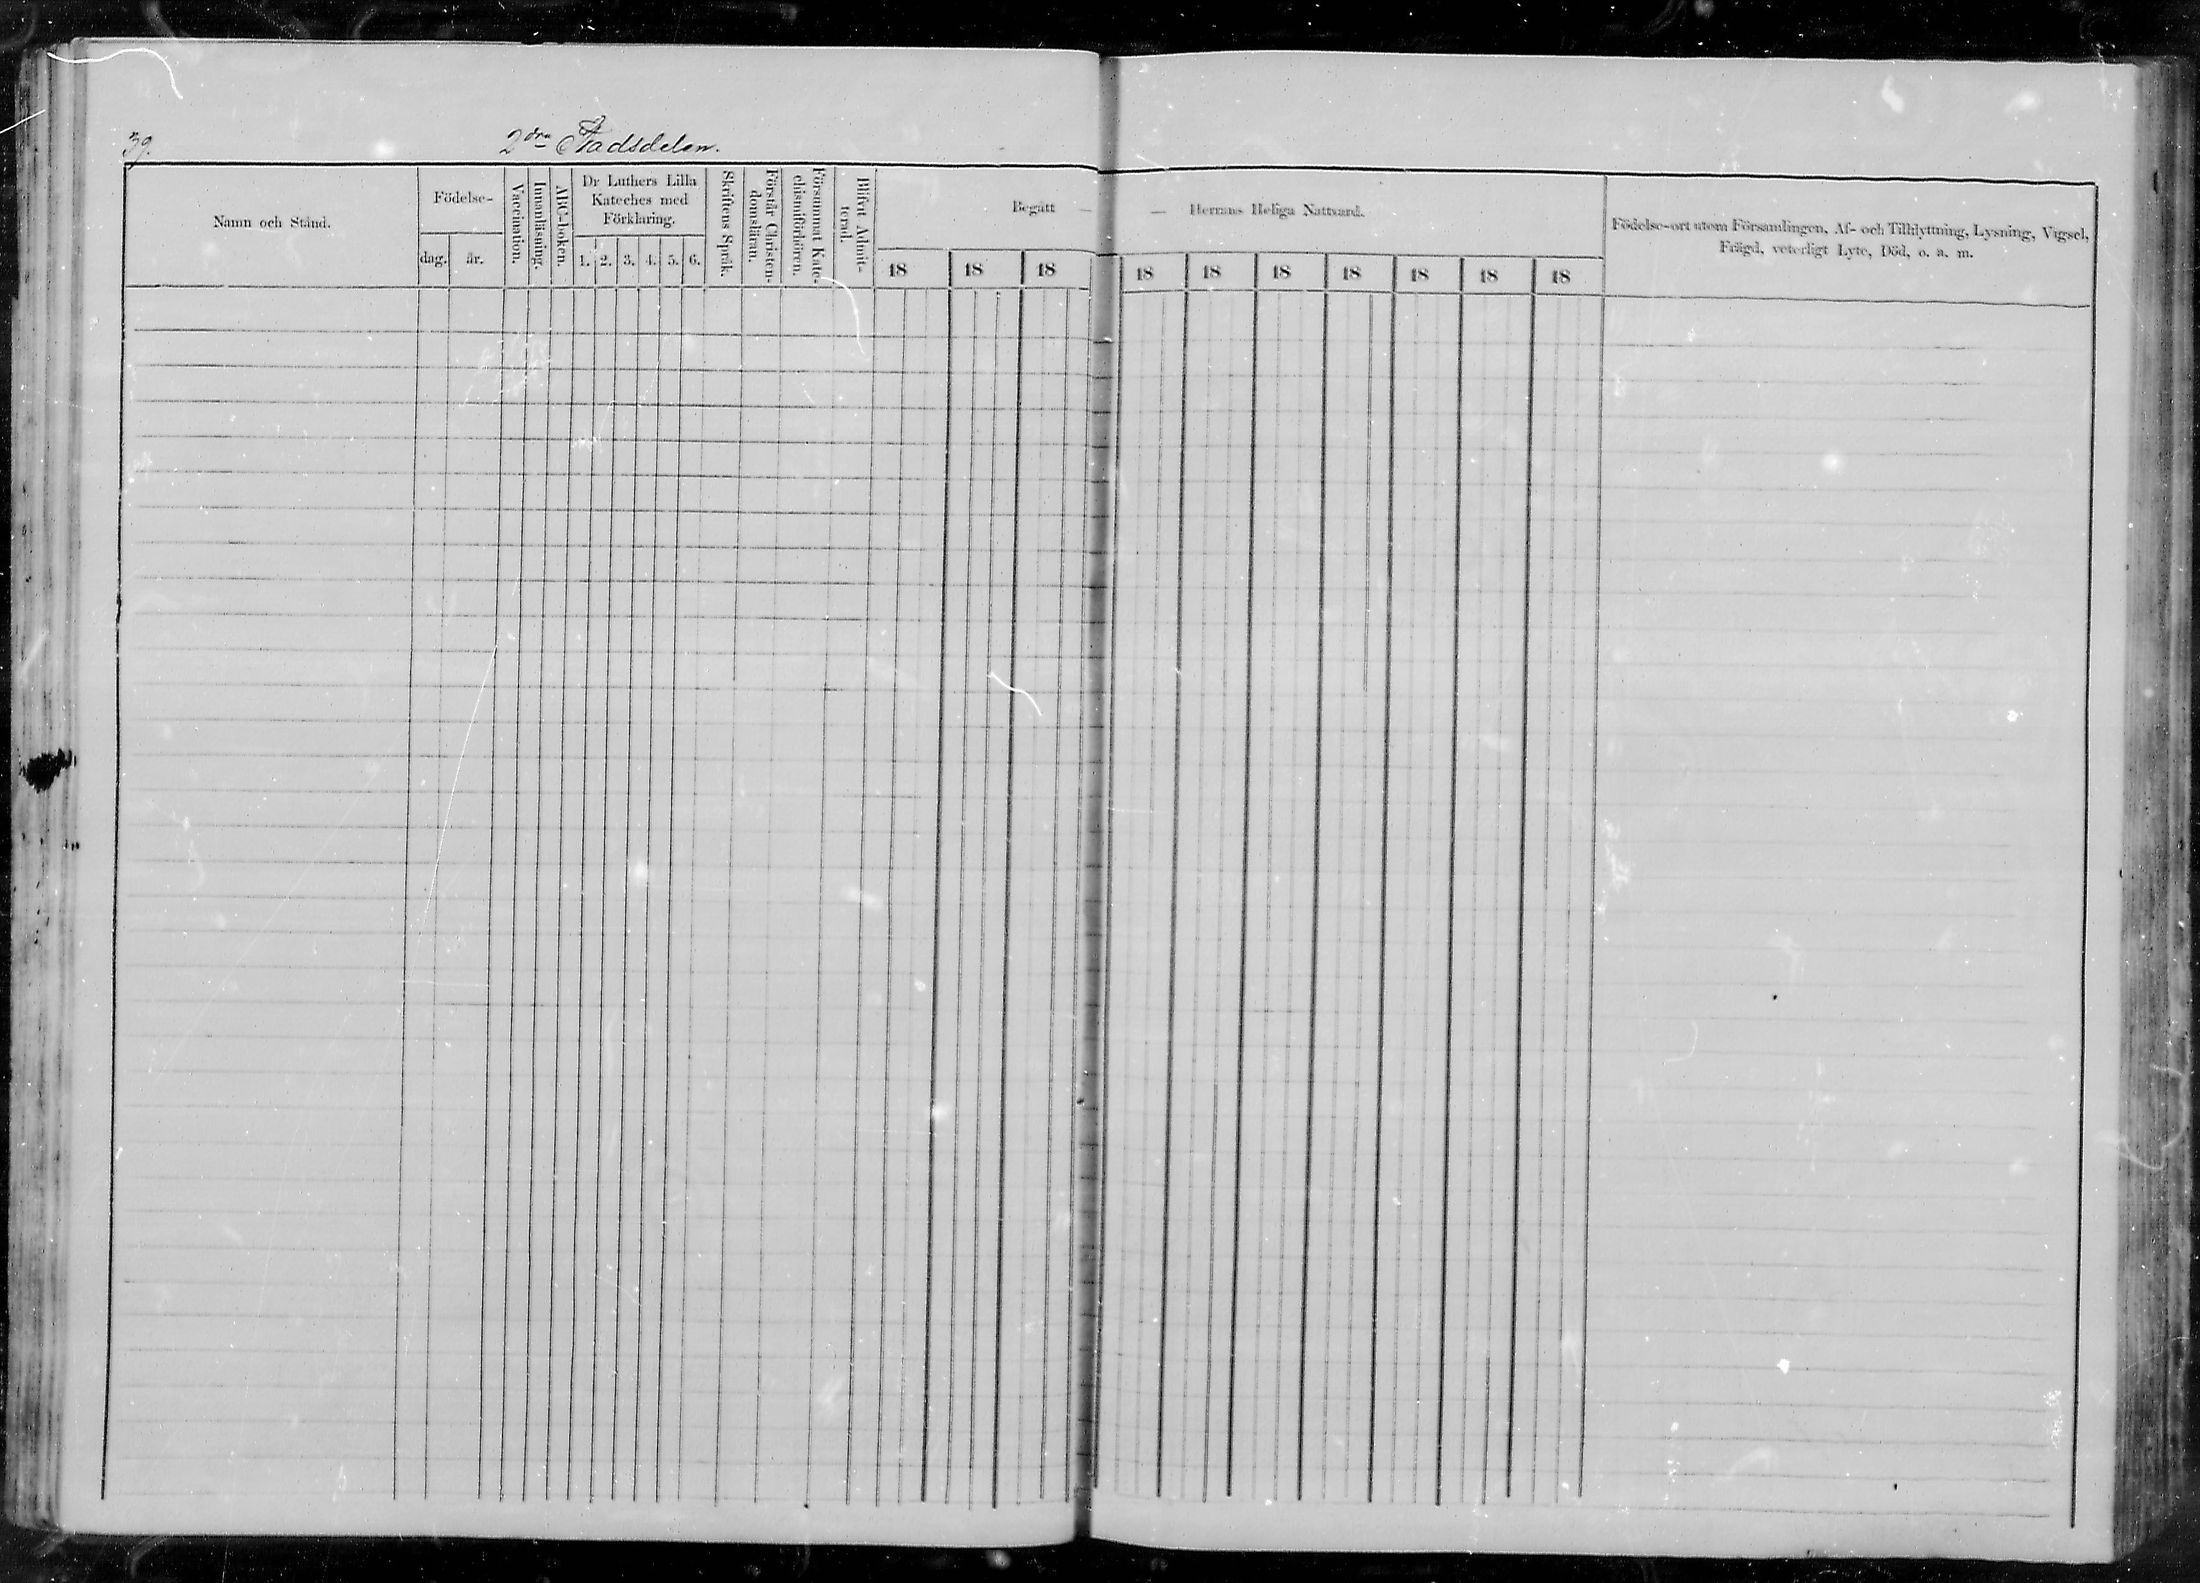 39.
2dra Stadsdelen.
Namn och Stånd.
Födelse-
dag.
år.
Vaccination.
Innanläsning.
ABC-boken.
Dr Luthers Lilla
Kateches med
Förklaring.
1. 2. 3. 4. 5. 6.
Skriftens Språk.
Förstår Christen-
domsläran.
Försummat Kate-
chismiförhören.
Blifvit Admit-
terad.
Begått —
18 18 18
— Herrans Heliga Nattvard.
18 18 18 18 18 18 18
Födelse-ort utom Församlingen, Af- och Tillflyttning, Lysning, Vigsel,
Frägd, veterligt Lyte, Död, o. a. m.